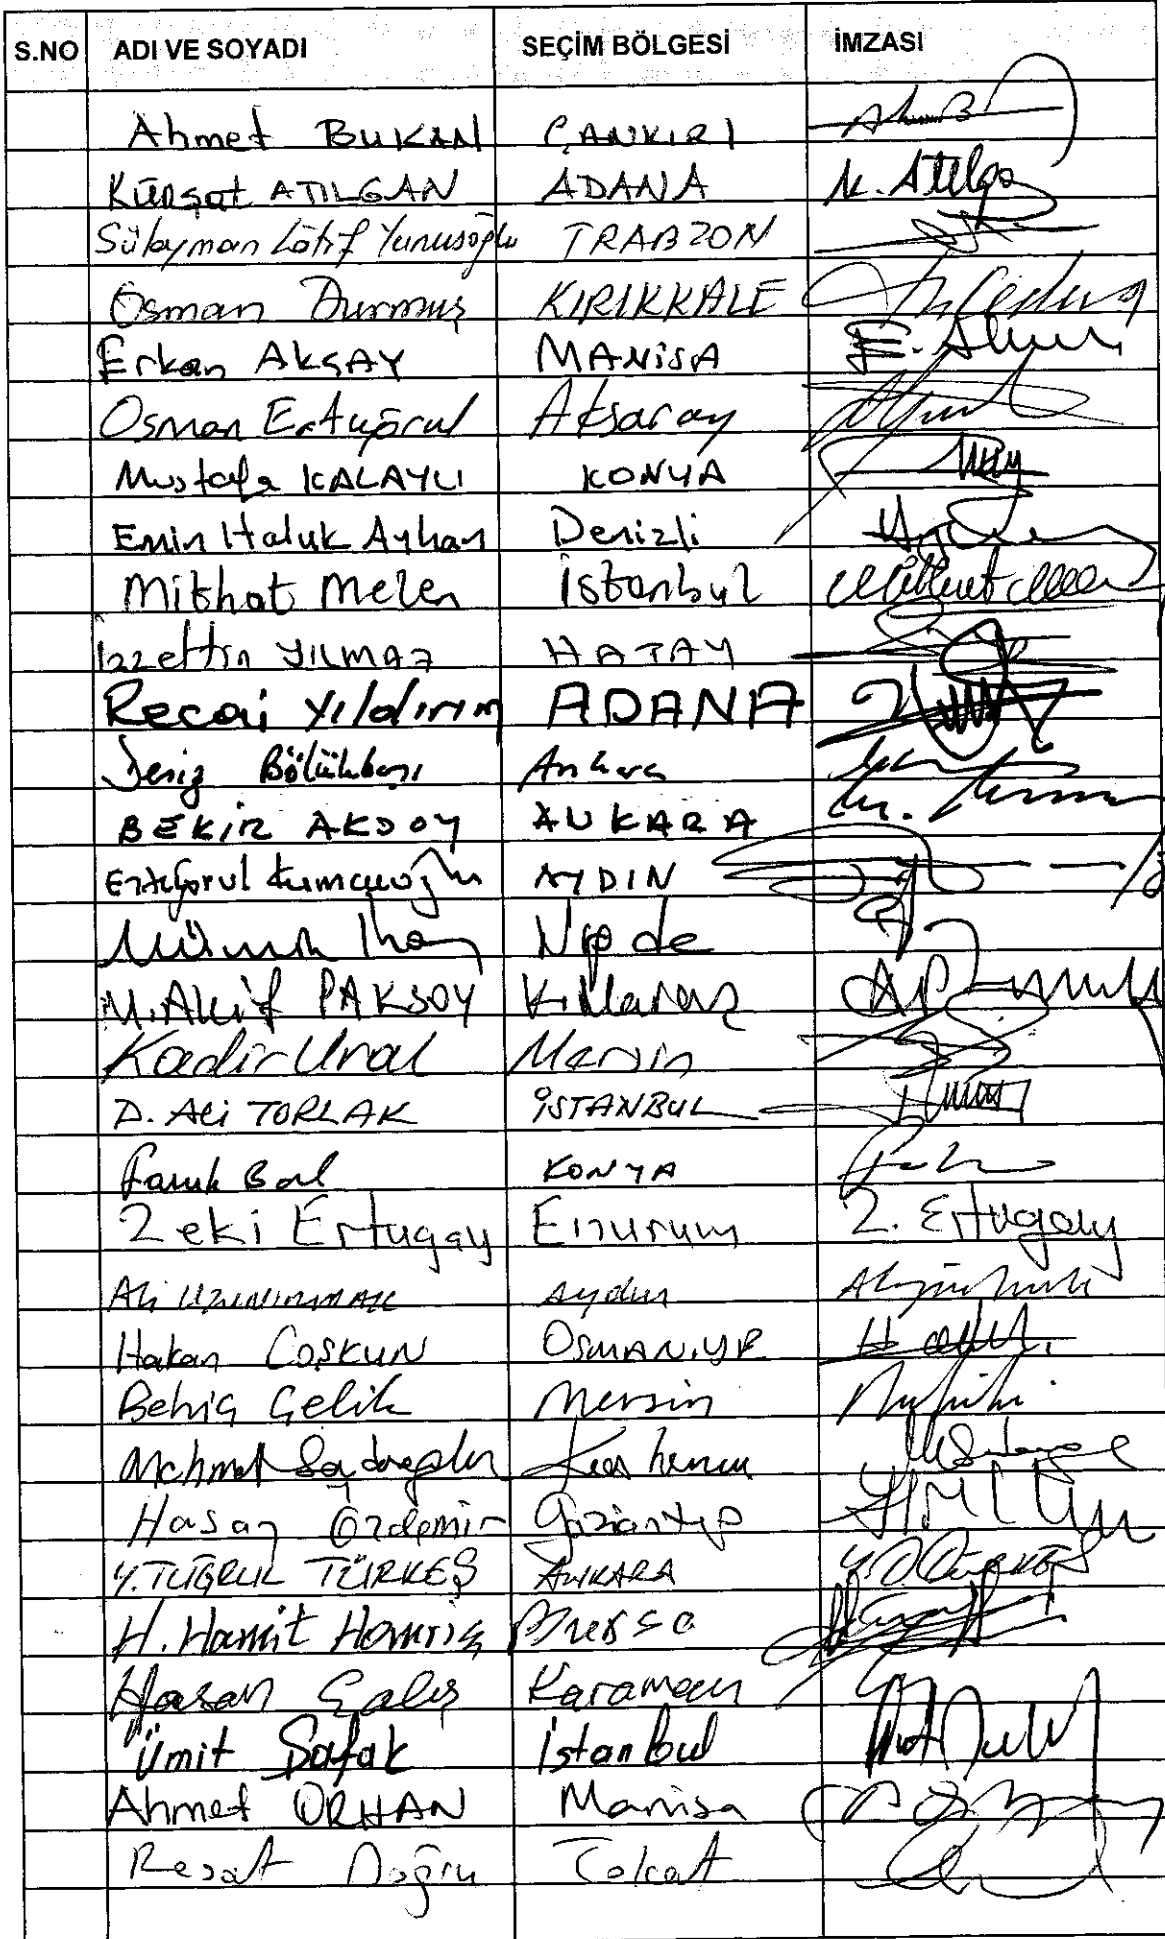 S.NO ADI VE SOYADI SEÇİM BÖLGESİ İMZASI
Ahmet BUKAN ÇANKIRI
Kürşat ATILGAN ADANA K. Atılga
Süleyman Lâtif Yunusoğlu TRABZON
Osman Durmuş KIRIKKALE
Erkan AKÇAY MANİSA
Osman Ertuğrul Aksaray
Mustafa KALAYCI KONYA
Emin Haluk Ayhan Denizli
Mithat Melen İstanbul
İzzettin YILMAZ HATAY
Recai Yıldırım ADANA
Deniz Bölükbaşı Ankara
BEKİR AKSOY ANKARA
Ertuğrul Kumcuoğlu AYDIN
Mümin İnan Niğde
M. Akif PAKSOY K.Maraş
Kadir Ural Mersin
D. Ali TORLAK İSTANBUL
Faruk Bal KONYA
Zeki Ertugay Erzurum Z. Ertugay
Ali UZUNIRMAK Aydın
Hakan COŞKUN OSMANİYE
Behiç Çelik Mersin
Mehmet Kastamonu
Hasan Özdemir Gaziantep
Y. TUĞRUL TÜRKEŞ ANKARA
H. Hamit Homriş Bursa
Hasan Çalış Karaman
Ümit Şafak İstanbul
Ahmet ORHAN Manisa
Reşat Doğru Tokat